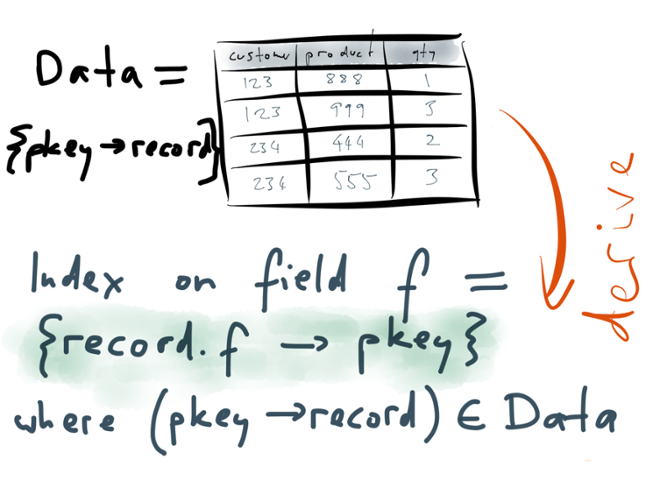 Data =
{pkey → record}
customer product qty
123 888 1
123 999 3
234 444 2
234 555 3
derive
Index on field f =
{record.f → pkey}
where (pkey → record) ∈ Data